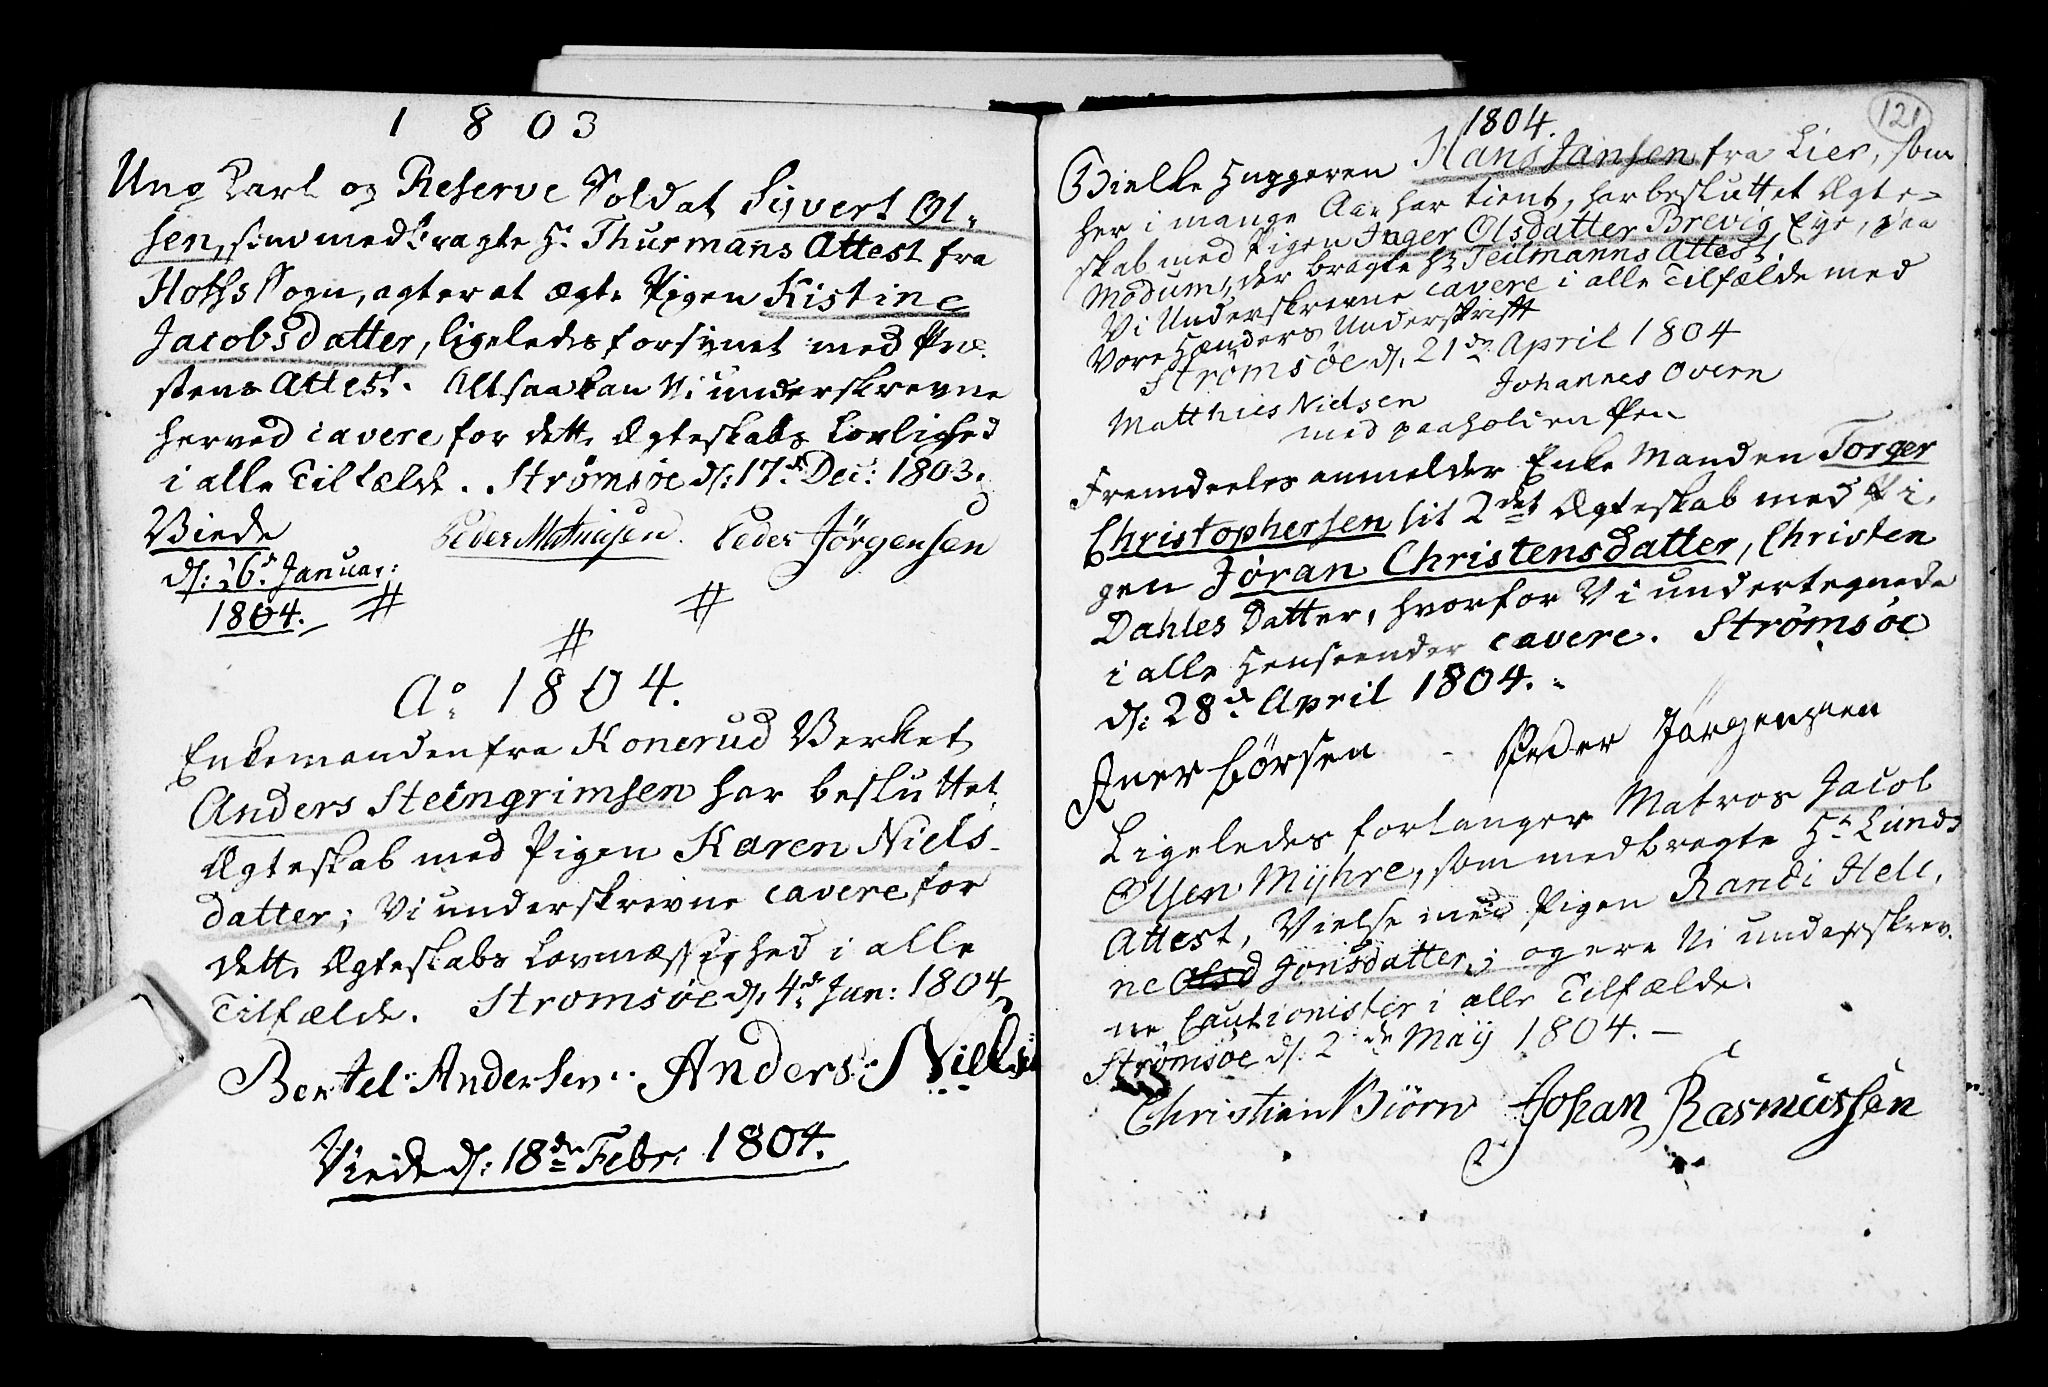 1803
Ung Karl og Reserve Soldat Sijvert Ol-
sen, som medbragte Hr Thurmans Attest fra
Hoffs Sogn, agter at ægte Pigen Kistine
Jacobsdatter, ligeledes forsynet med Præ-
stens Attest. Altsaa kan Vi underskrevne
herved cavere for dette Ægteskabs Lovlighed
i alle Tilfælde. Strømsøe d: 17de Dec: 1803.
Peder Mathisen. Peder Jörgensen
Viede
d: 26de Januar:
1804.
Ao 1804.
Enkemanden fra Konerud Verket
Anders Steingrimsen har besluttet
Ægteskab med Pigen Karen Niels-
datter; Vi underskrevne cavere for
dette Ægteskabs Lovmæssighed i alle
Tilfælde. Stromsöe d: 4de Jan: 1804
Bertel Andersen. Anders Niels
Viede d: 18de Febr: 1804.
121
1804.
Bielke Huggeren Hans Jansen fra Lier, som
her i mange Aar har tient, har besluttet Ægte-
skab med Pigen Inger Olsdatter Brevig Eye, paa
Modum, der bragte Hr Teilmanns Attest.
Vi Underskrevne cavere i alle Tilfælde med
Vore Hænders Underskrift
Strömsöe d: 21de April 1804
Matthies Nielsen Johannes Overn
med paaholden Pen
Fremdeeles anmelder Enke Manden Torger
Christophersen sit 2det Ægteskab med Pi-
gen Jöran Christensdatter, Christen
Dahles Datter, hvorfor Vi undertegnede
i alle Henseender cavere. Strömsöe
d: 28de April 1804.
Iver Börsen - Peder Jørgensen
Ligeledes forlanger Matros Jacob
Olsen Mijhre, som medbragte Hr Lunds
Attest, Vielse med Pigen Randi Hele-
ne Olsd Jonsdatter; og ere Vi underskrev-
ne Cautionister i alle Tilfælde.
Strømsøe d: 2de Maij 1804. -
Christian Biörn Johan Rasmussen